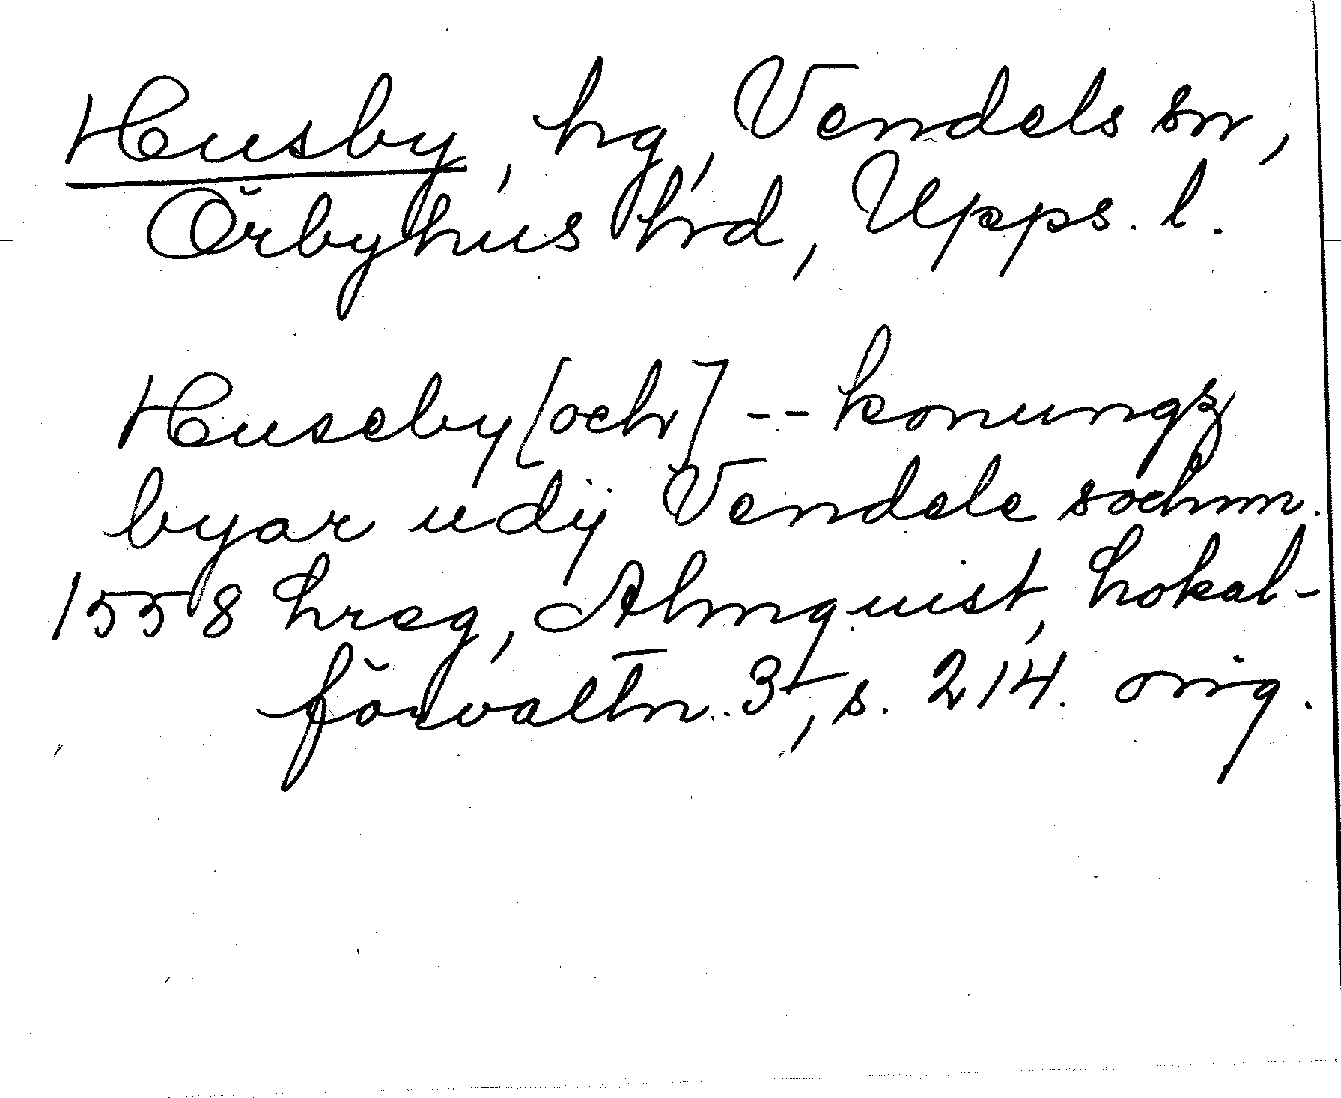 Husby, hg, Vendels sn,
Örbyhus hrd, Upps. l.
Huseby [och] -- konungz
byar udij Vendele sochnn.
1558 hreg, Almquist, Lokal-
förvaltn. 3, s. 214. orig.